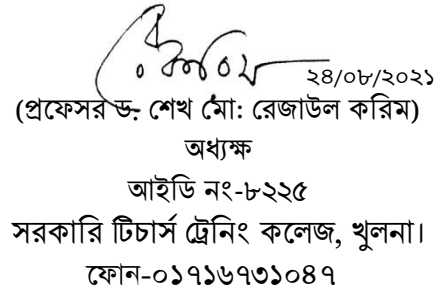 ২৪/০৮/২০২১
(প্রফেসর ড. শেখ মো: রেজাউল করিম)
অধ্যক্ষ
আইডি নং-৮২২৫
সরকারি টিচার্স ট্রেনিং কলেজ, খুলনা।
ফোন-০১৭১৬৭৩১০৪৭